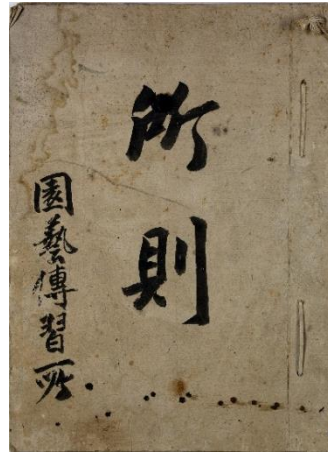 所則
園藝傳習所